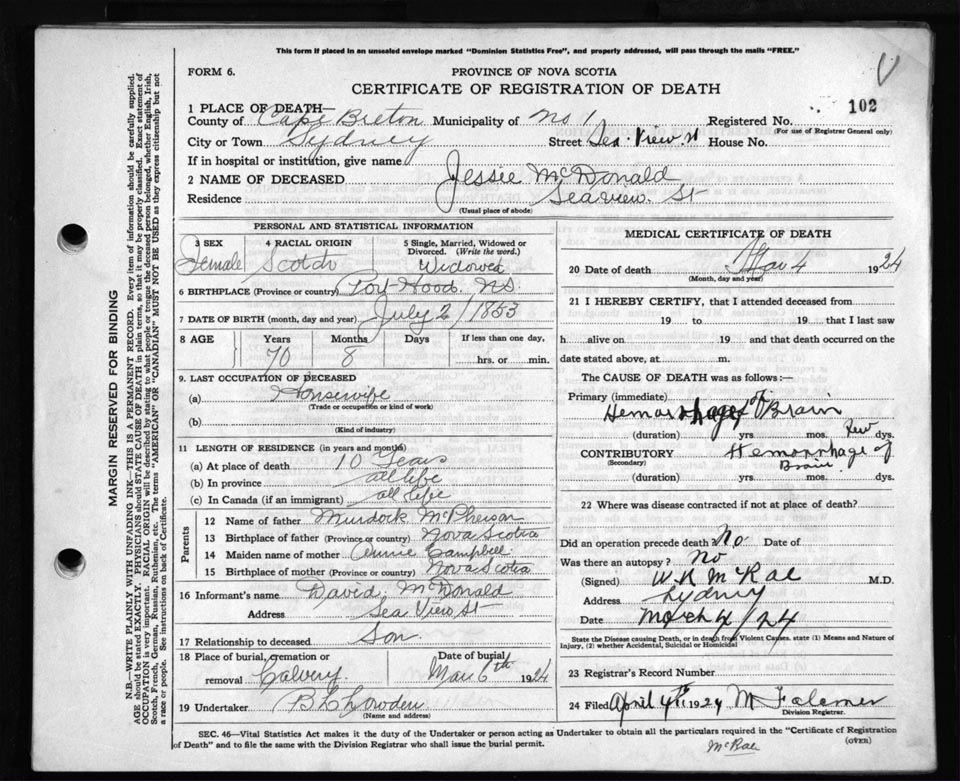 This form if placed in an unsealed envelope marked "Dominion Statistics Free", and properly addressed, will pass through the mails "FREE."
FORM 6.
PROVINCE OF NOVA SCOTIA
CERTIFICATE OF REGISTRATION OF DEATH
102
1 PLACE OF DEATH—
County of Cape Breton Municipality of No 1 Registered No.
(For use of Registrar General only)
City or Town Sydney Street Sea View St House No.
If in hospital or institution, give name
2 NAME OF DECEASED Jessie McDonald
Residence Seaview St
(Usual place of abode)
PERSONAL AND STATISTICAL INFORMATION
3 SEX 4 RACIAL ORIGIN 5 Single, Married, Widowed or Divorced. (Write the word.)
Female Scotch Widowed
6 BIRTHPLACE (Province or country) Port Hood. N.S.
7 DATE OF BIRTH (month, day and year) July 2/1853
8 AGE Years Months Days If less than one day,
70 8 hrs. or min.
9. LAST OCCUPATION OF DECEASED
(a) Housewife
(Trade or occupation or kind of work)
(b)
(Kind of industry)
11 LENGTH OF RESIDENCE (in years and months)
(a) At place of death 10 Years
(b) In province all life
(c) In Canada (if an immigrant) all life
Parents
12 Name of father Murdock McPherson
13 Birthplace of father (Province or country) Nova Scotia
14 Maiden name of mother Annie Campbell
15 Birthplace of mother (Province or country) Nova Scotia
16 Informant's name David McDonald
Address Sea View St
17 Relationship to deceased Son.
18 Place of burial, cremation or removal Calvery Date of burial Mar 6th 1924
19 Undertaker
(Name and address)
MEDICAL CERTIFICATE OF DEATH
20 Date of death Mar 4 1924
(Month, day and year)
21 I HEREBY CERTIFY, that I attended deceased from
19 to 19 that I last saw
h alive on 19 and that death occurred on the
date stated above, at m.
The CAUSE OF DEATH was as follows:—
Primary (immediate)
Hemorrhage of Brain
(duration) yrs. mos. Few dys.
CONTRIBUTORY Hemorrhage of
(Secondary) Brain
(duration) yrs. mos. dys.
22 Where was disease contracted if not at place of death?
Did an operation precede death? No Date of
Was there an autopsy? No
(Signed) McRae M.D.
Address Sydney
Date March 4/24
State the Disease causing Death, or in death from Violent Causes, state (1) Means and Nature of
Injury, (2) whether Accidental, Suicidal or Homicidal
23 Registrar's Record Number
24 Filed April 4th 1924
Division Registrar.
SEC. 46—Vital Statistics Act makes it the duty of the Undertaker or person acting as Undertaker to obtain all the particulars required in the "Certificate of Registration
of Death" and to file the same with the Division Registrar who shall issue the burial permit.
(OVER)
McRae
MARGIN RESERVED FOR BINDING
N.B.—WRITE PLAINLY WITH UNFADING INK—THIS IS A PERMANENT RECORD. Every item of information should be carefully supplied.
AGE should be stated EXACTLY. PHYSICIANS should STATE CAUSE OF DEATH in plain terms, so that it may be properly classified. Exact statement of
OCCUPATION is very important. RACIAL ORIGIN will be described by stating to what people or tongue the deceased person belonged, whether English, Irish,
Scotch, French, German, Russian, Ruthenian, etc. The terms "AMERICAN" OR "CANADIAN" MUST NOT BE USED as they express citizenship but not
a race or people. See instructions on back of Certificate.